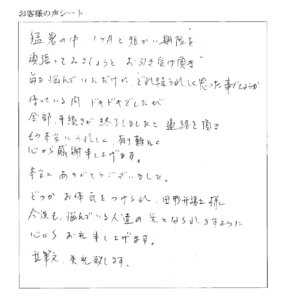 お客様の声シート
猛暑の中 1ヶ月と短かい期限を
頑張ってみましょうと お引き受け頂き
毎日悩んでいただけに どれ程うれしく思った事でしょうか
待っている間 ドキドキでしたが
全部、手続きが 終了しましたと 連絡を頂き
もう本当にうれしく、有り難たく
心から感謝申し上げます。
本当に ありがとうございました。
どうか お体に気をつけられ、田野弁護士様
今後も、悩んでいる人達の 光となられますように
心から お礼申し上げます。
乱筆乱文、失礼致します。